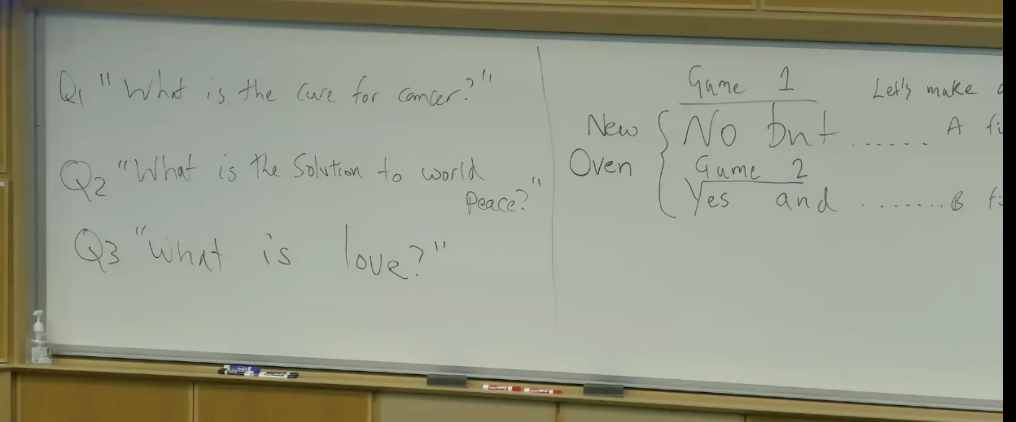 Q1 "What is the cure for cancer?"
Q2 "What is the Solution to world
peace?"
Q3 "What is love?"
Game 1
Let's make
New
Oven
No but ......
A
Game 2
Yes and ....... B